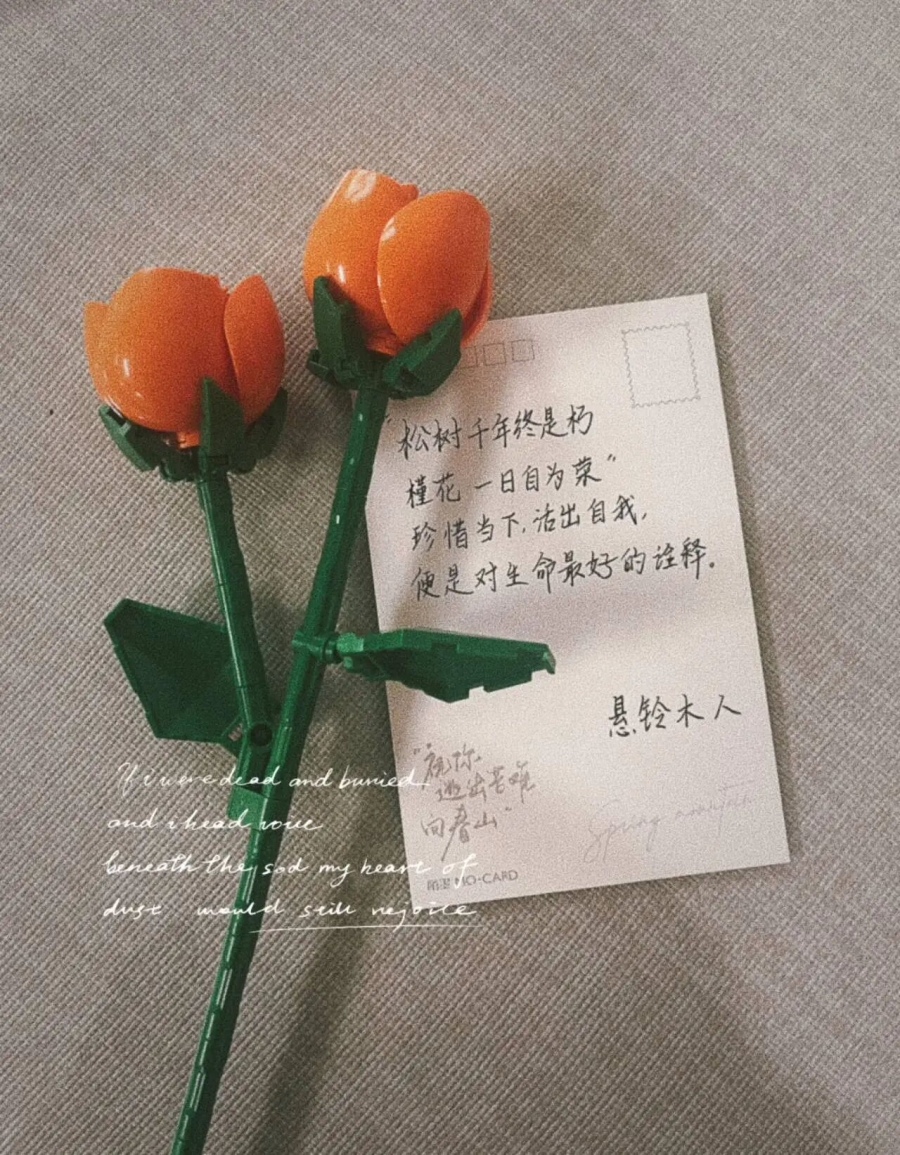 “松树千年终是朽
槿花一日自为荣”
珍惜当下,活出自我,
便是对生命最好的诠释。
悬铃木人
“祝你
逃出苦难
向春山”
Spring mountain
MO·CARD
If i were dead and buried
and i head your
beneath the sod my heart of
dust would still rejoice